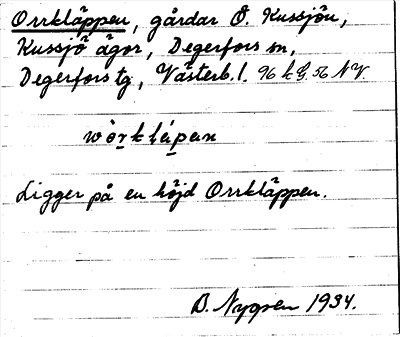 Orrkläppen, gårdar Ö. Kussjön,
Kussjö ägor, Degerfors sn,
Degerfors tg, Västerb. l. 96 k G. 56 NV.
Ligger på en höjd Orrkläppen.
B. 1934.